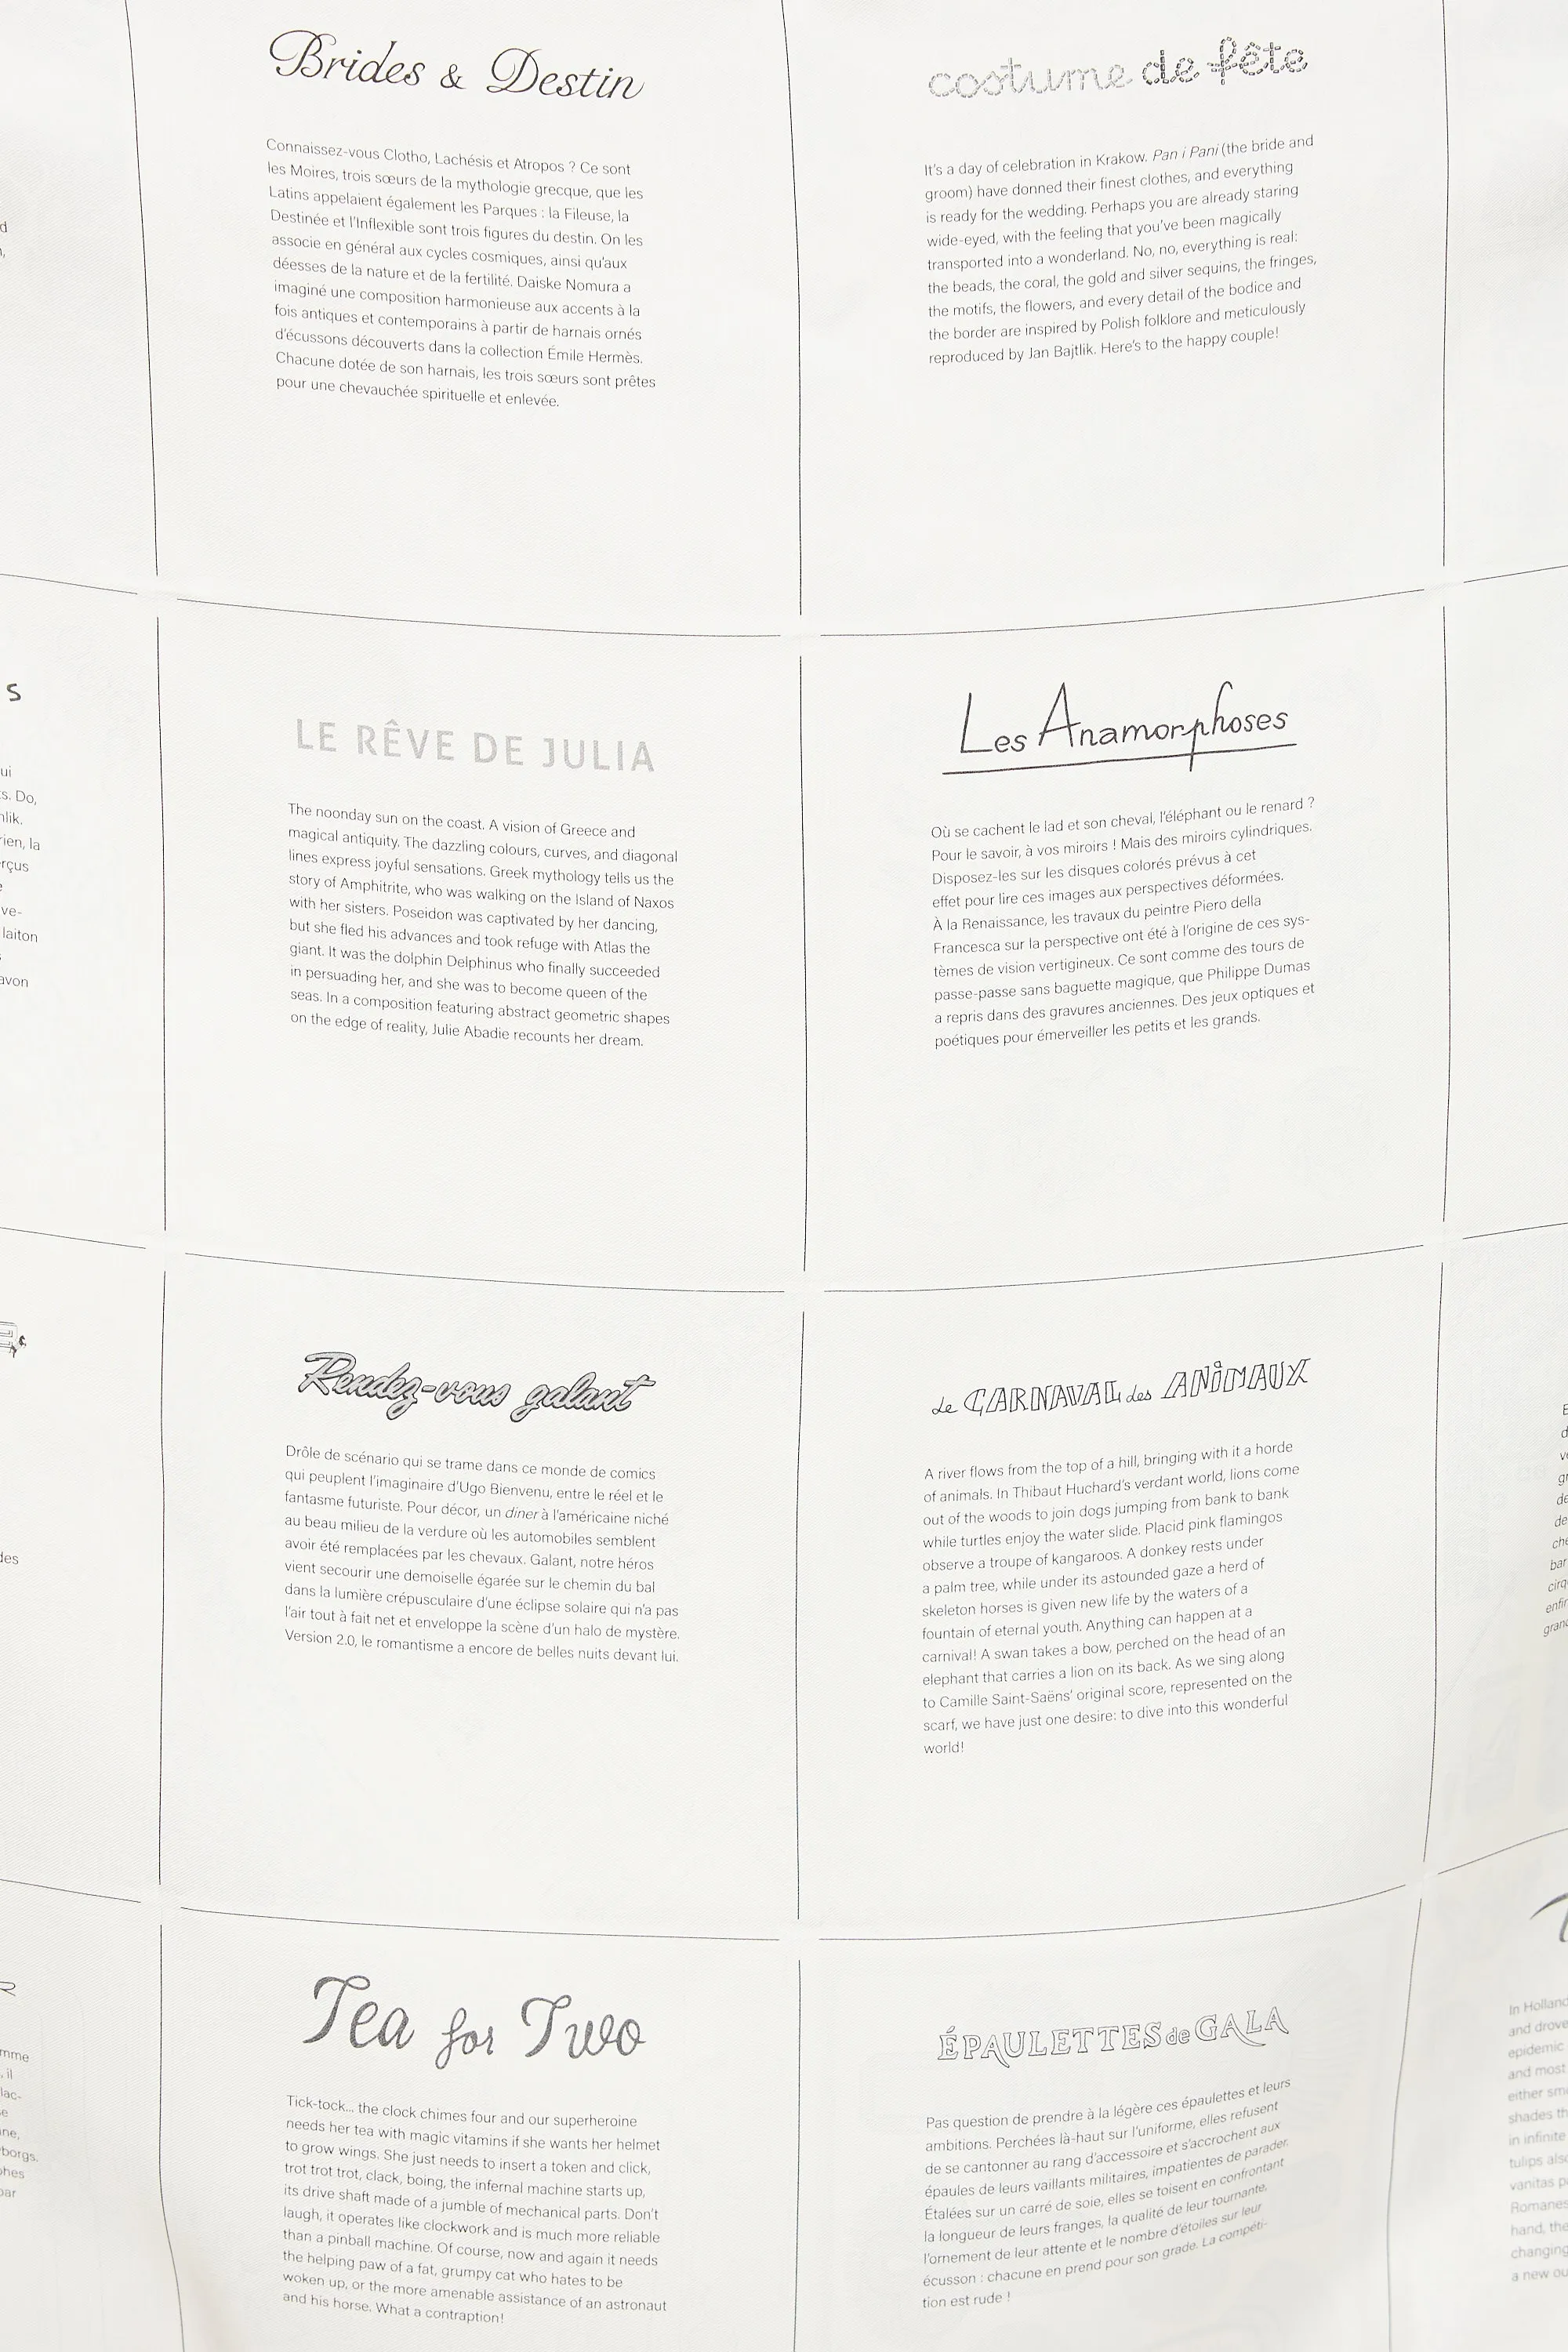 Brides & Destin
Connaissez-vous Clotho, Lachésis et Atropos ? Ce sont
les Moires, trois sœurs de la mythologie grecque, que les
Latins appelaient également les Parques : la Fileuse, la
Destinée et l'Inflexible sont trois figures du destin. On les
associe en général aux cycles cosmiques, ainsi qu'aux
déesses de la nature et de la fertilité. Daiske Nomura a
imaginé une composition harmonieuse aux accents à la
fois antiques et contemporains à partir de harnais ornés
d'écussons découverts dans la collection Émile Hermès.
Chacune dotée de son harnais, les trois sœurs sont prêtes
pour une chevauchée spirituelle et enlevée.
costume de fête
It's a day of celebration in Krakow. Pan i Pani (the bride and
groom) have donned their finest clothes, and everything
is ready for the wedding. Perhaps you are already staring
wide-eyed, with the feeling that you've been magically
transported into a wonderland. No, no, everything is real:
the beads, the coral, the gold and silver sequins, the fringes,
the motifs, the flowers, and every detail of the bodice and
the border are inspired by Polish folklore and meticulously
reproduced by Jan Bajtlik. Here's to the happy couple!
s
ui
s. Do,
ien, la
rçus
ve-
laiton
avon
LE RÊVE DE JULIA
The noonday sun on the coast. A vision of Greece and
magical antiquity. The dazzling colours, curves, and diagonal
lines express joyful sensations. Greek mythology tells us the
story of Amphitrite, who was walking on the Island of Naxos
with her sisters. Poseidon was captivated by her dancing,
but she fled his advances and took refuge with Atlas the
giant. It was the dolphin Delphinus who finally succeeded
in persuading her, and she was to become queen of the
seas. In a composition featuring abstract geometric shapes
on the edge of reality, Julie Abadie recounts her dream.
Les Anamorphoses
Où se cachent le lad et son cheval, l'éléphant ou le renard ?
Pour le savoir, à vos miroirs ! Mais des miroirs cylindriques.
Disposez-les sur les disques colorés prévus à cet
effet pour lire ces images aux perspectives déformées.
À la Renaissance, les travaux du peintre Piero della
Francesca sur la perspective ont été à l'origine de ces sys-
tèmes de vision vertigineux. Ce sont comme des tours de
passe-passe sans baguette magique, que Philippe Dumas
a repris dans des gravures anciennes. Des jeux optiques et
poétiques pour émerveiller les petits et les grands.
Rendez-vous galant
Drôle de scénario qui se trame dans ce monde de comics
qui peuplent l'imaginaire d'Ugo Bienvenu, entre le réel et le
fantasme futuriste. Pour décor, un diner à l'américaine niché
au beau milieu de la verdure où les automobiles semblent
avoir été remplacées par les chevaux. Galant, notre héros
vient secourir une demoiselle égarée sur le chemin du bal
dans la lumière crépusculaire d'une éclipse solaire qui n'a pas
l'air tout à fait net et enveloppe la scène d'un halo de mystère.
Version 2.0, le romantisme a encore de belles nuits devant lui.
Le CARNAVAL des ANIMAUX
A river flows from the top of a hill, bringing with it a horde
of animals. In Thibaut Huchard's verdant world, lions come
out of the woods to join dogs jumping from bank to bank
while turtles enjoy the water slide. Placid pink flamingos
observe a troupe of kangaroos. A donkey rests under
a palm tree, while under its astounded gaze a herd of
skeleton horses is given new life by the waters of a
fountain of eternal youth. Anything can happen at a
carnival! A swan takes a bow, perched on the head of an
elephant that carries a lion on its back. As we sing along
to Camille Saint-Saëns' original score, represented on the
scarf, we have just one desire: to dive into this wonderful
world!
Tea for Two
Tick-tock... the clock chimes four and our superheroine
needs her tea with magic vitamins if she wants her helmet
to grow wings. She just needs to insert a token and click,
trot trot trot, clack, boing, the infernal machine starts up,
its drive shaft made of a jumble of mechanical parts. Don't
laugh, it operates like clockwork and is much more reliable
than a pinball machine. Of course, now and again it needs
the helping paw of a fat, grumpy cat who hates to be
woken up, or the more amenable assistance of an astronaut
and his horse. What a contraption!
ÉPAULETTES de GALA
Pas question de prendre à la légère ces épaulettes et leurs
ambitions. Perchées là-haut sur l'uniforme, elles refusent
de se cantonner au rang d'accessoire et s'accrochent aux
épaules de leurs vaillants militaires, impatientes de parader.
Étalées sur un carré de soie, elles se toisent en confrontant
la longueur de leurs franges, la qualité de leur tournante,
l'ornement de leur attente et le nombre d'étoiles sur leur
écusson : chacune en prend pour son grade. La compéti-
tion est rude !
In Holland
and drove
epidemic
and most
either sm
shades th
in infinite
tulips als
vanitas p
Romanes
hand, the
changing
a new ou